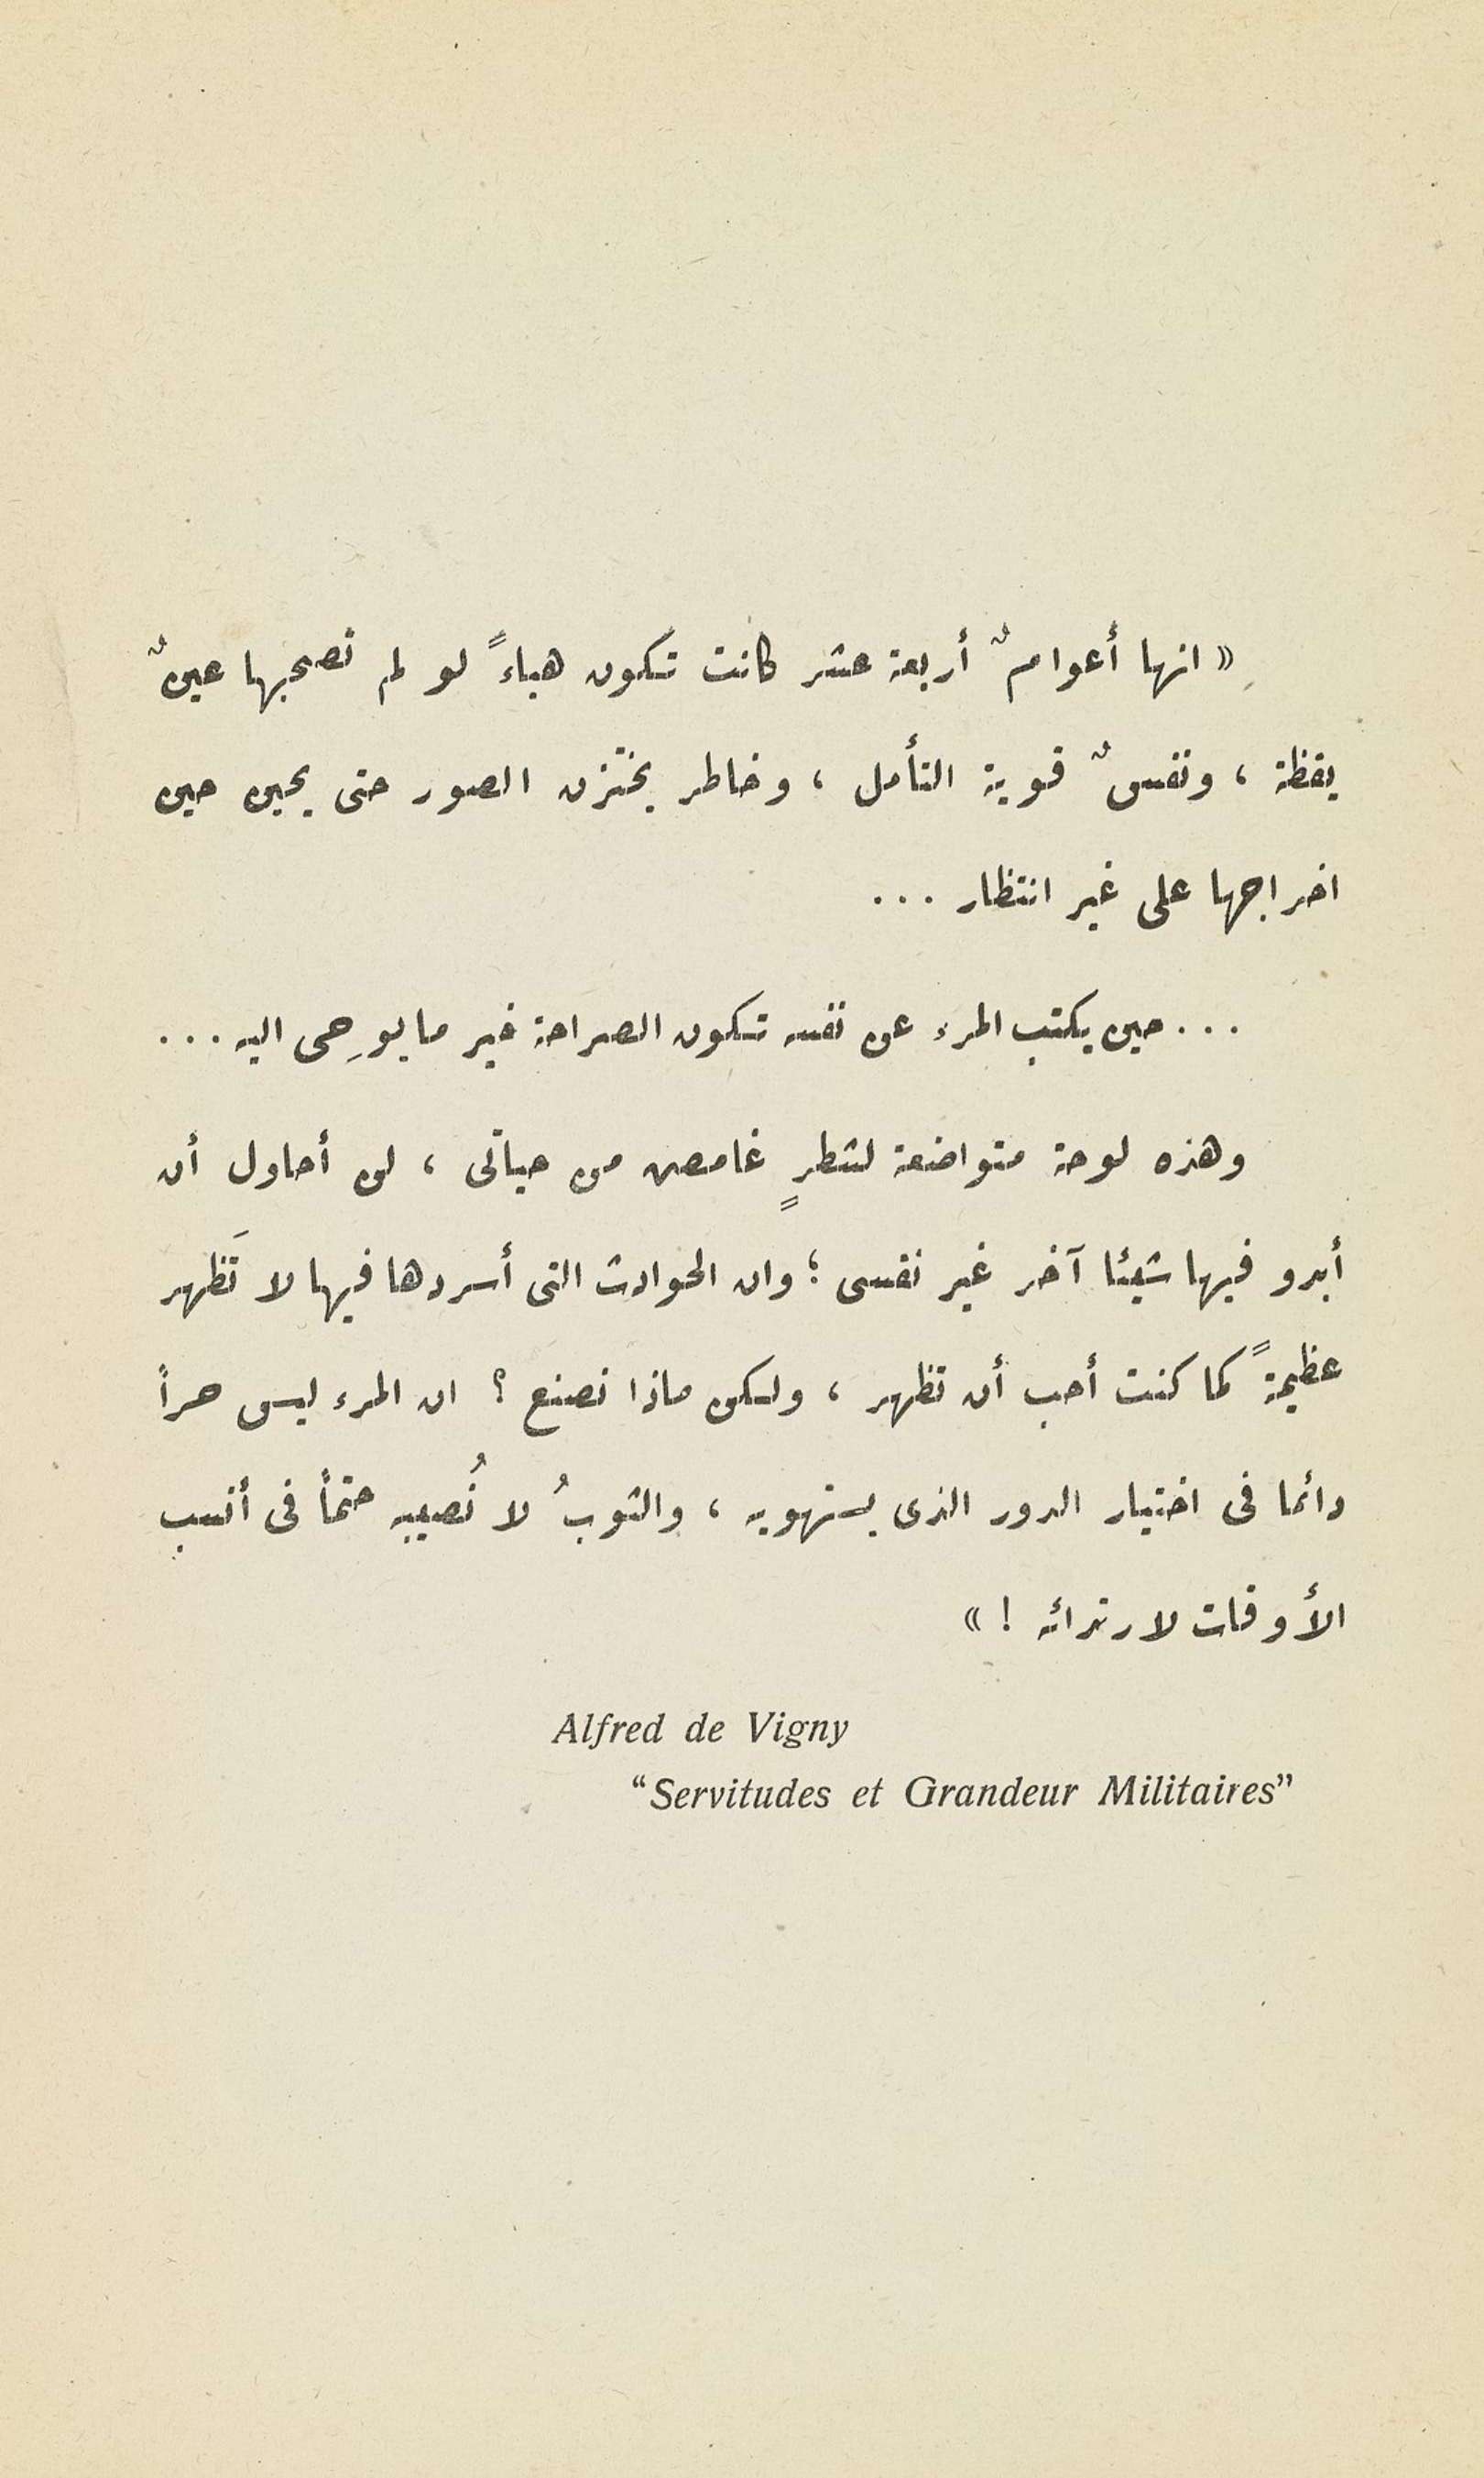 « انها أعوامٌ أربعة عشر كانت تكون هباءً لو لم تصحبها عينٌ
يقظة ، ونفسٌ قوية التأمل ، وخاطر يختزن الصور حتى يحين حين
اخراجها على غير انتظار ...
... حين يكتب المرء عن نفسه تكون الصراحة خير ما يوحِى اليه ...
وهذه لوحة متواضعة لشطرٍ غامض من حياتى ، لن أحاول أن
أبدو فيها شيئا آخر غير نفسى ؛ وان الحوادث التى أسردها فيها لا تَظهر
عظيمةً كما كنت أحب أن تظهر ، ولكن ماذا نصنع ؟ ان المرء ليس حراً
دائما فى اختيار الدور الذى يستهويه ، والثوبُ لا نُصيبه حتماً فى أنسب
الأوقات لارتدائه ! »
Alfred de Vigny
“Servitudes et Grandeur Militaires”